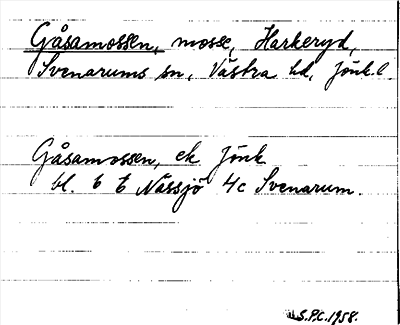 Gåsamossen, mosse, Harkeryd,
Svenarums sn, Västra hd, Jönk. l.
Gåsamossen, ek Jönk
bl. 6 E Nässjö 4c Svenarum.
S.P.C. 1958.